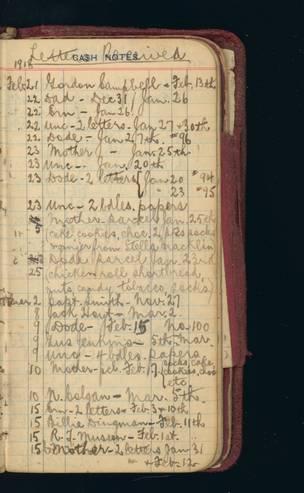 Letters Received
CASH NOTES.
1918
Feb. 21 Gordon Campbell - Feb. 13th
22 Dad - Dec 31 / Jan. 26
22 Ern - Jan 26
22 Unc - 2 letters - Jan 27 + 30th
22 Dode - Jan 27th. #96
23 Mother - Jan. 25th
23 Unc - Jan. 20th
23 Dode - 2 letters { Jan 20 #94
" 23 #95
23 Unc - 2 bdles. papers
Mother - parcel Jan. 25th
cake, cookies, choc. 2 prs socks
from Stella Macklin
Dode parcel Jan. 23rd
25 chicken roll shortbread,
nuts candy tobacco, socks)
2 Capt. Smith - Nov. 27
8 Jack Hoyt - Mar. 2
9 Dode - Feb. 15 No. 100
9 Gus Jenkins - 5th. Mar.
9 Unc - 4 bdles. papers
10 Mother - pcl. Feb. 7. (socks, cake,
cookies, choc
etc
10 N. Colgan - Mar. 5th.
15 Ern - 2 letters - Feb. 3 + 10th
15 Billie Dingman - Feb. 11th
15 R. J. Musson - Feb. 1st.
15 Mother - 2 letters Jan 31
+ Feb. 12